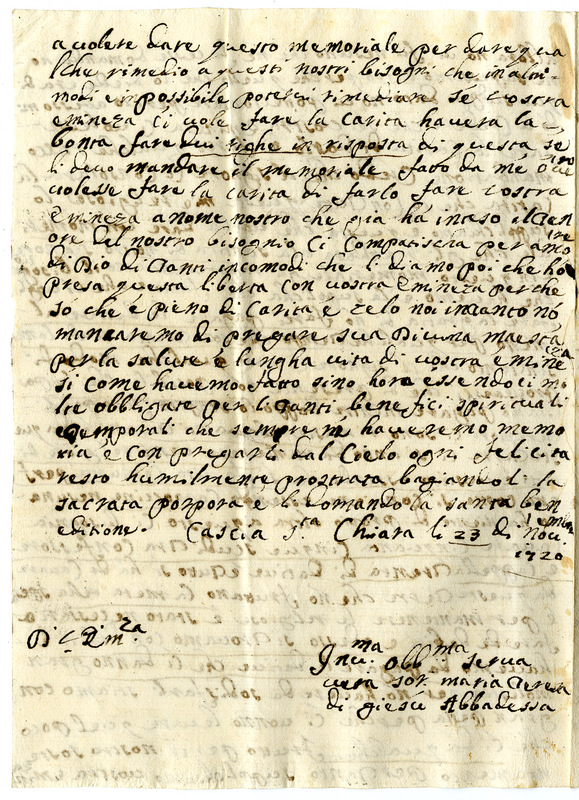 a volere dare questo memoriale per dare qua
lche rimedio a questi nostri bisogni che in altri
modi e inpossibile poterci rimediare se vostra
emineza ci vole fare la carita havera la
bonta fare dui righe in risposta di questa se
li devo mandare il memoriale fatto da me o vero
volesse fare la carita di farlo fare vostra
Emineza a nome nostro che gia ha inteso il Ten
ore del nostro bisognio Ci Compatischa per amore
di Dio di Tanti incomodi che li diamo poi che ho
presa questa liberta con vostra Emineza perche
so che è pieno di Carita é zelo noi intanto nó
mancaremo di pregare sua Divina maestá
per la salute é lungha vita di vostra emineza
si come havemo fatto sino hora éssendoci mo
lte obbligate per li Tanti benefici spirituali
e Temporali che sempre ne haveremo memo
ria é con pregarli dal Cielo ogni felicita
resto humilmente prostrata baciandoli la
sacrata porpora e li domando la santa ben
editione. Cascia S.ta Chiara li 23 di Novembre
1720
Di V. Em.za
Um.ma Obb.ma serva
vera sor. maria Teresa
di giesú Abbadessa